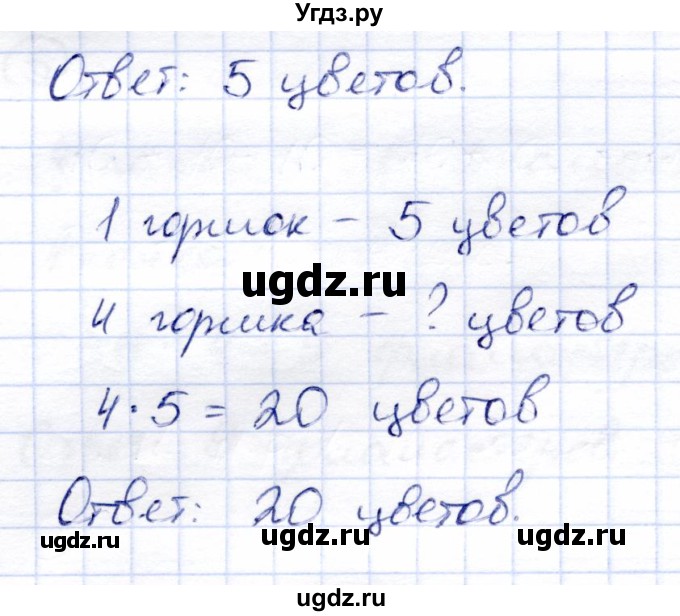 Угдз.ру
Ответ: 5 цветов.
1 горшок – 5 цветов
ugdz.ru
4 горшка – ? цветов
4·5=20 цветов
Ответ: 20 цветов.
ugdz.ru ugdz.ru ugdz.ru
ugdz.ru